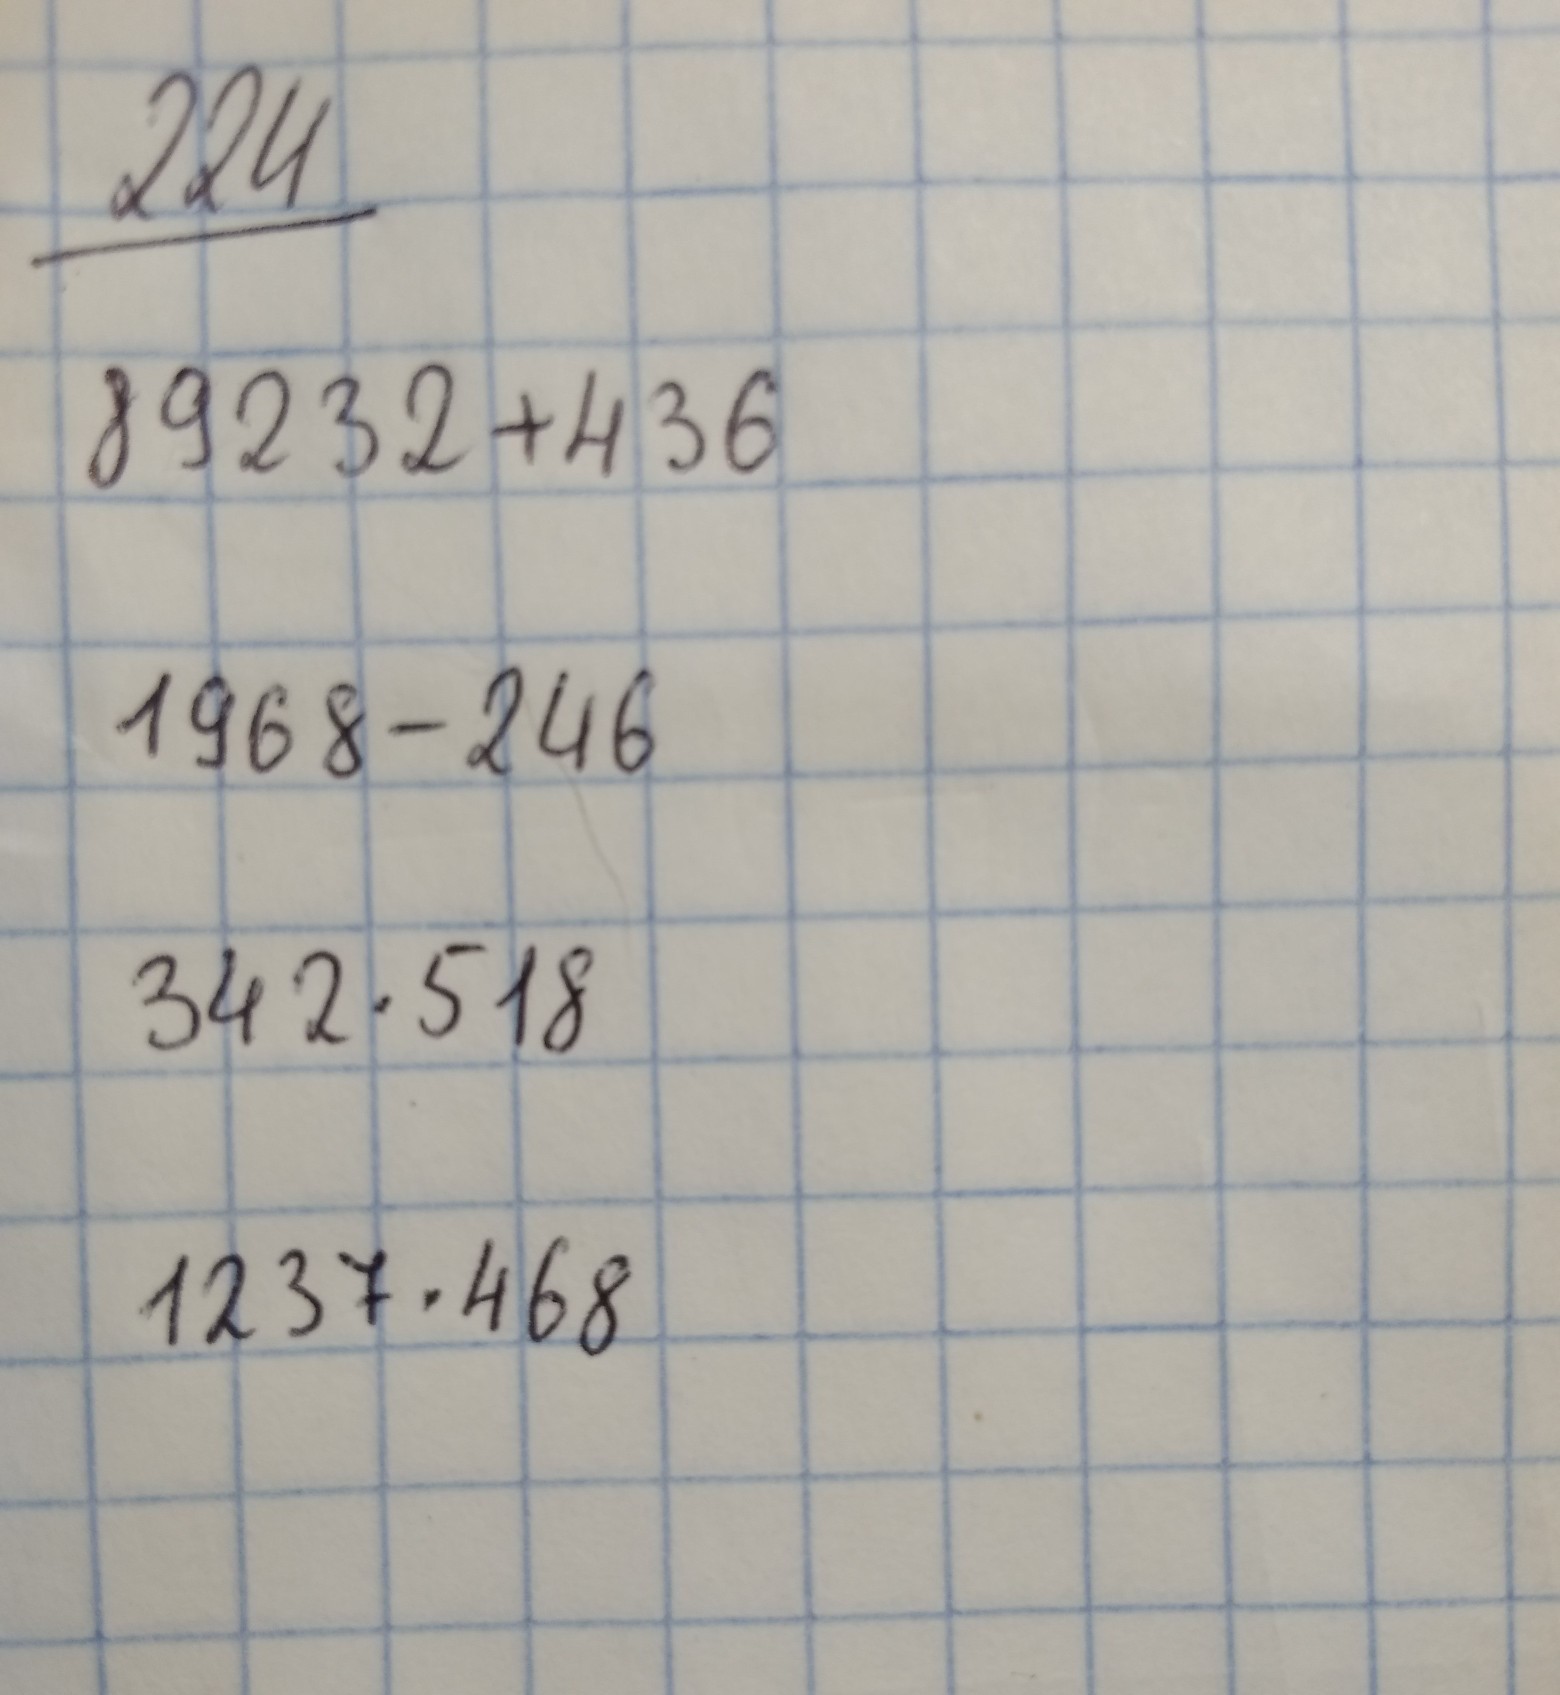 224
89232+436
1968-246
342·518
1237·468